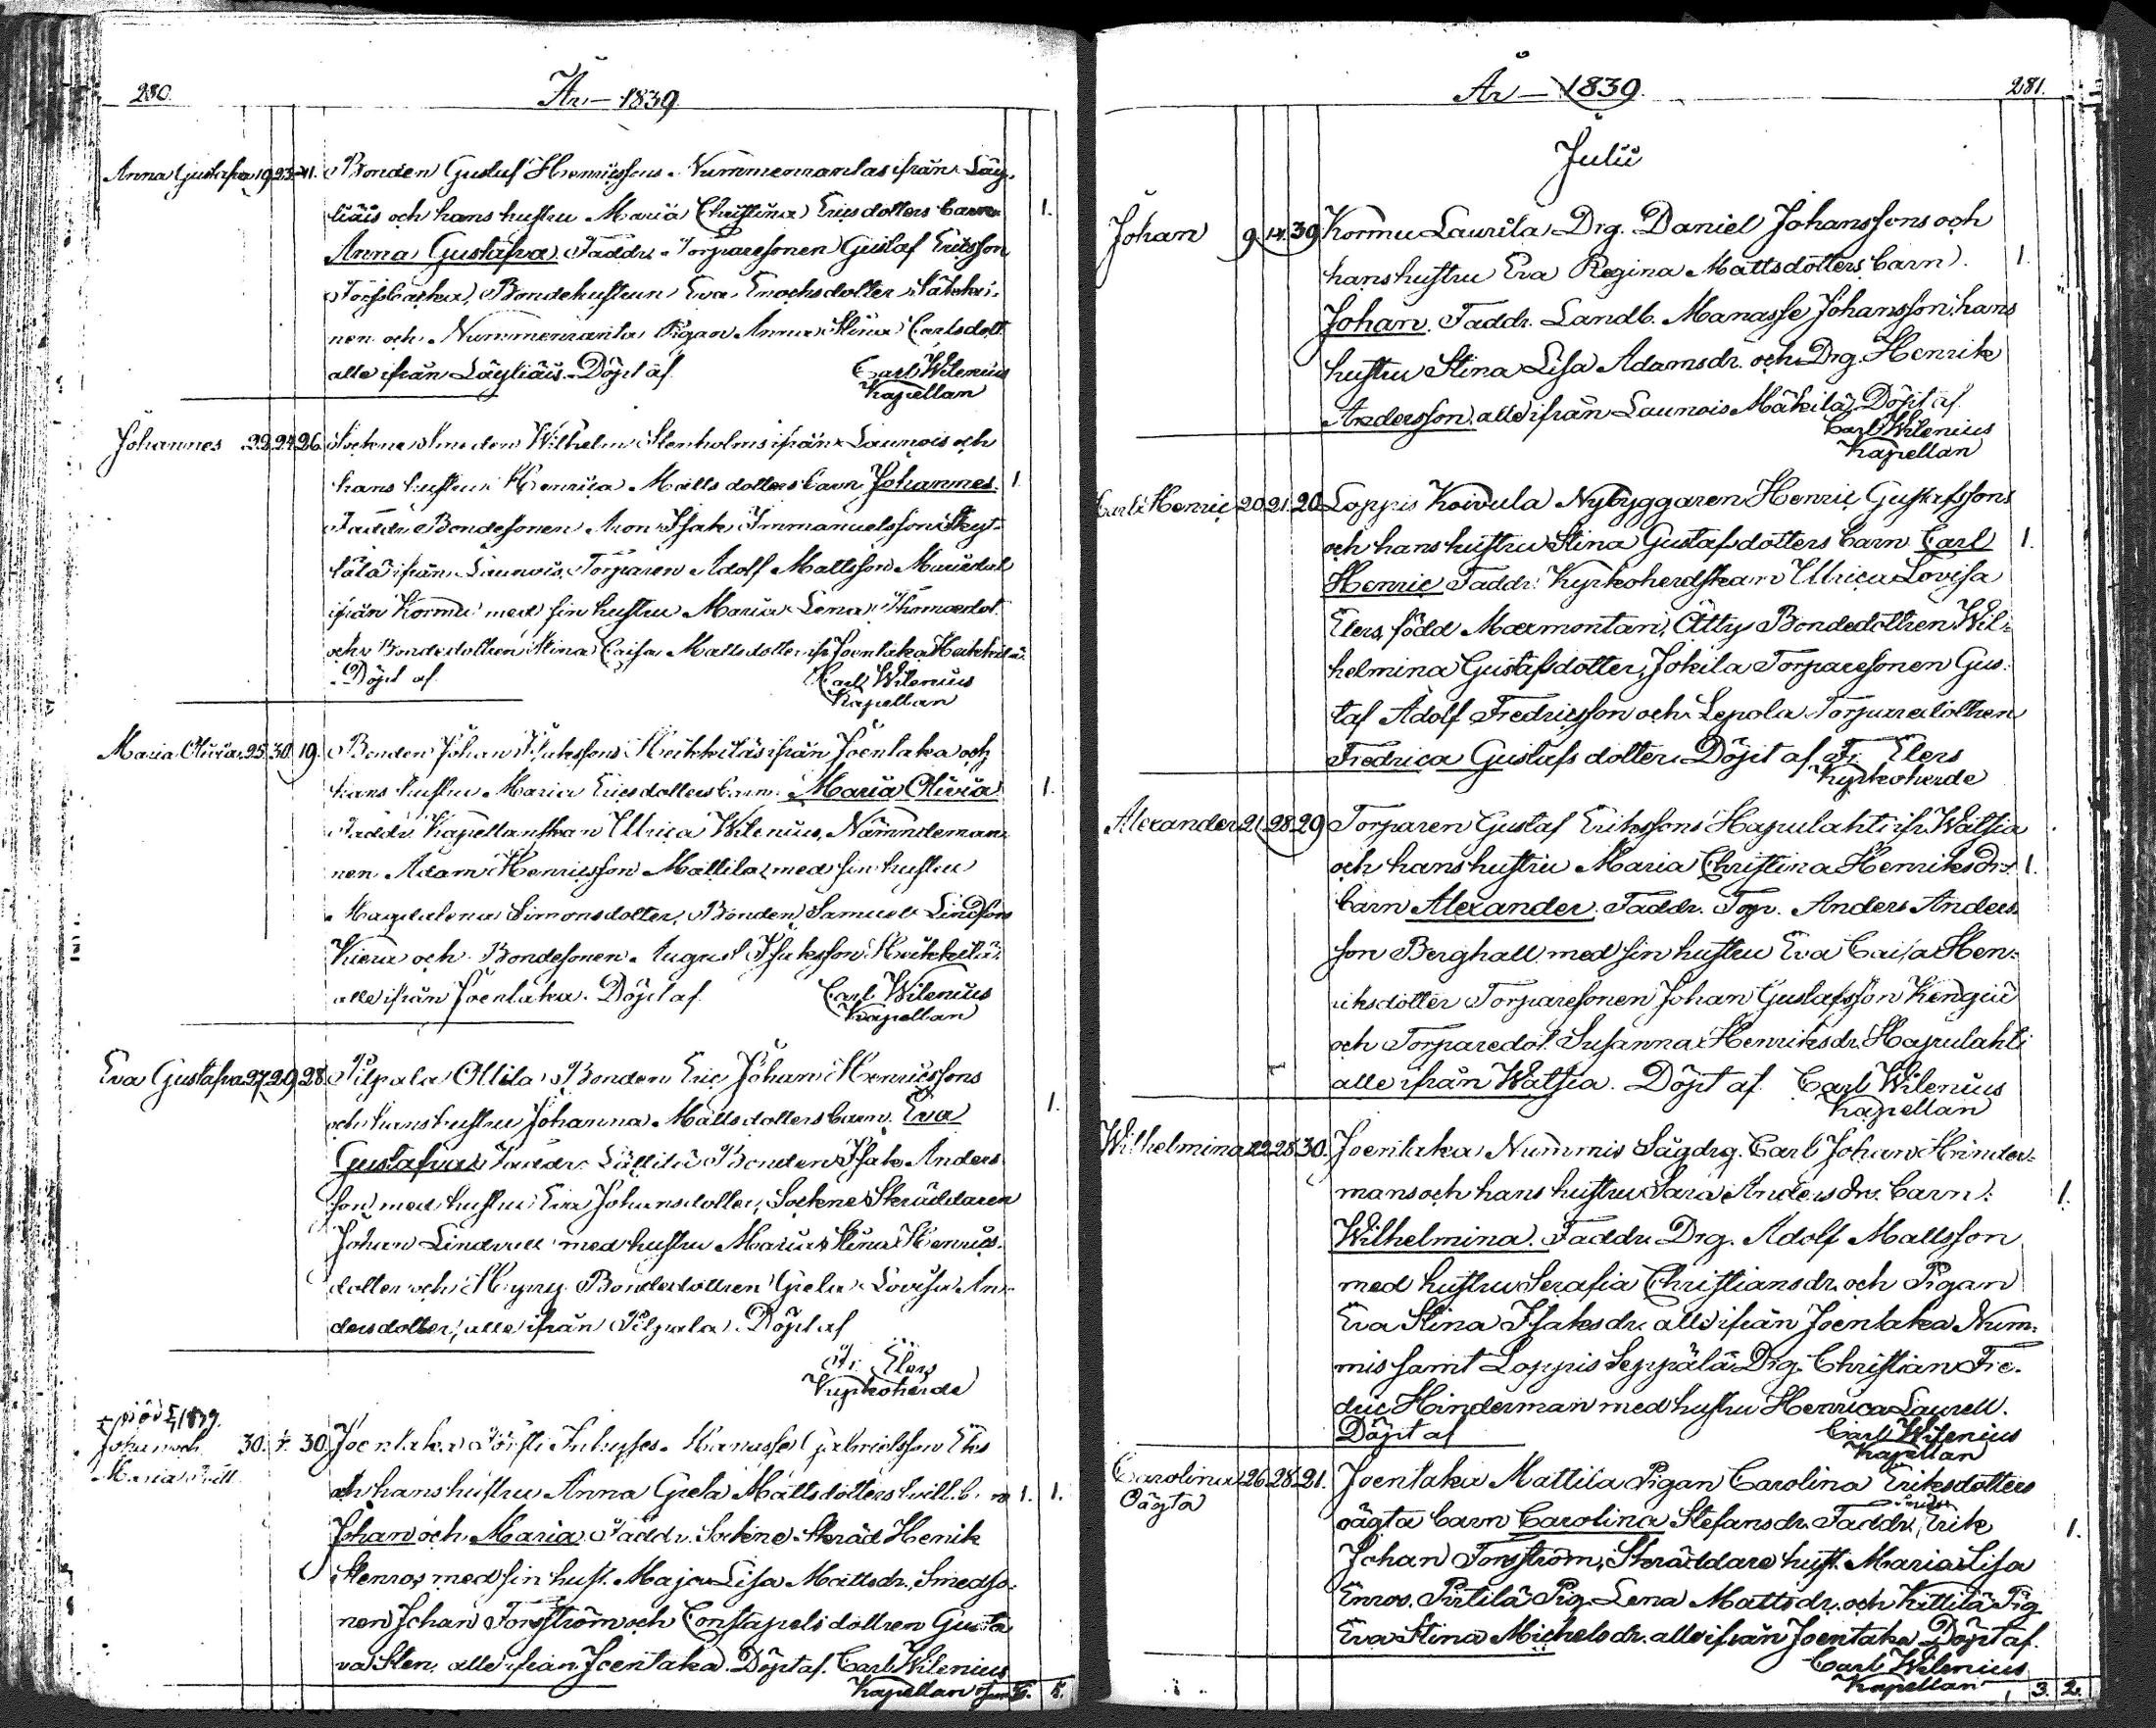 280.
År 1839
Anna Gustafva 19 23 41. Bonden Gustuf Henricssons Nummenmantas ifrån Läy-
liäis och hans hustru Maria Christina Ericsdotters barn 1.
Anna Gustafva. Faddr. Torparesonen Gustaf Ericsson
Torfsbacka, Bondehustrun Eva Enochsdotter
nen och Nummenmanta Pigan Anna Stina Carlsdott.
alle ifrån Läyliäis. Döpt af Carl Wilenius
Kapellan
Johannes 22 24 26. Sockne Smeden Wilhelm Stenholms ifrån Launois och
hans hustru Henrica Matts dotters barn Johannes. 1
Faddr. Bondesonen Aron Isak Immanuelsson
ifrån Launois, Torparen Adolf Mattsson
ifrån Kormu med sin hustru Maria Lena Thomædot.
och Bondedottren Stina Caisa Mattsdotter ifr Joentaka Heikkilä.
Döpt af Carl Wilenius
Kapellan
Maria Olivia 25 30 19. Bonden Johan Isakssons Heikkiläs ifrån Joentaka och
hans hustru Maria Ericsdotters barn Maria Olivia 1.
Faddr. Kapellanskan Ulrica Wilenius, Nämndeman-
nen Adam Henricsson Mattila med sin hustru
Magdalena Simonsdotter, Bonden Samuel
och Bondesonen August Isaksson Heikkilä
alle ifrån Joentaka. Döpt af Carl Wilenius
Kapellan
Eva Gustafva 27 29 28. Pilpala Ollila Bonden Eric Johan Henricssons
och hans hustru Johanna Mattsdotters barn Eva 1.
Gustafva. Faddr. Bonden Isak Anders-
son med hustru Eva Johansdotter, Sockne Skräddaren
Johan Lindvall med hustru Maria Stina Henrics-
dotter och Bondedottren Greta Lovisa An-
dersdotter, alle ifrån Pilpala. Döpt af
Fr. Elers
Kyrkoherde
1839.
Johan och 30. 30. Joentaka Manasse Gabrielsson
Maria
och hans hustru Anna Greta Mattsdotters tvill. b. 1. 1.
Johan och Maria. Faddr. Sockne Skräd Henrik
Stenros med sin hust. Maja Lisa Mattsdr., Smedso-
nen Johan Forsström och Constapels dottren Gusta
va Sten, alle ifrån Joentaka. Döpt af. Carl Wilenius
Kapellan
År 1839.
281.
Julii
Johan 9 14 39 Kormu Laurila Drg. Daniel Johanssons och
hans hustru Eva Regina Mattsdotters barn 1.
Johan. Faddr. Landb. Manasse Johansson, hans
hustru Stina Lisa Adamsdr. och Drg. Henrik
Andersson, alle ifrån Launois Mäkilä. Döpt af
Carl Wilenius
Kapellan
Carl Henric 20 21 20 Loppis Koivula Nybyggaren Henric Gustafssons
och hans hustru Stina Gustafsdotters barn Carl 1.
Henric. Faddr. Kyrkoherdskan Ulrica Lovisa
Elers, född Mæmontan, Bondedottren Wil-
helmina Gustafsdotter, Jokila Torparesonen Gus-
taf Adolf Fredricsson och Lepola Torparedottren
Fredrica Gustafs dotter. Döpt af Fr. Elers
Kyrkoherde
Alexander 21 28 29 Torparen Gustaf Erikssons Hapulahti ifr Watsia
och hans hustru Maria Christina Henriksdr. 1.
barn Alexander. Faddr. Torp. Anders Anders-
son Berghall med sin hustru Eva Caisa Hen-
riksdotter Torparesonen Johan Gustafsson
och Torparedot. Susanna Henriksdr. Hapulahti
alle ifrån Watsia. Döpt af Carl Wilenius
Kapellan
Wilhelmina 22 28 30. Joentaka Nummis Sågdrg. Carl Johan Hinder-
mans och hans hustru Sara Andersdrs. barn 1.
Wilhelmina. Faddr. Drg. Adolf Mattsson
med hustru Serafia Christiansdr. och Pigan
Eva Stina Isaksdr. alle ifrån Joentaka Num-
mis samt Loppis Seppälä Drg. Christian Fre-
dric Hinderman med hustru Henrica Laurell.
Döpt af Carl Wilenius
Kapellan
Carolina 26 28 21. Joentaka Mattila Pigan Carolina Eriksdotters
Oägta
oägta barn Carolina Stefansdr. Faddr. Erik 1.
Johan Forsström, Skräddare hust. Maria Lisa
Enros. Pirtilä Pig. Lena Mattsdr. och Kittilä Pig.
Eva Stina Michelsdr. alle ifrån Joentaka. Döpt af.
Carl Wilenius
Kapellan
3. 2.